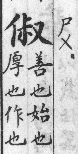 俶
ㄕㄨˋ
善也始也
厚也作也